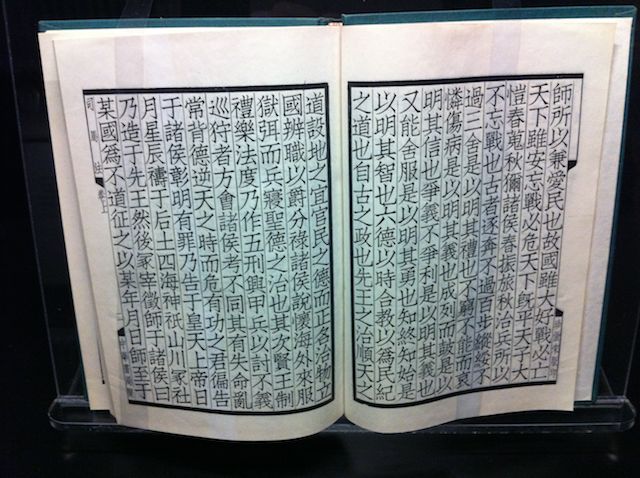 師所以兼愛民也故國雖大好戰必亡
天下雖安忘戰必危天下旣平天子大
愷春蒐秋獮諸侯春振旅秋治兵所以
不忘戰也古者逐奔不過百步縱綏不
過三舍是以明其禮也不窮不能而哀
憐傷病是以明其義也成列而鼓是以
明其信也爭義不爭利是以明其義也
又能舍服是以明其勇也知終知始是
以明其智也六德以時合敎以爲民紀
之道也自古之政也先王之治順天之
道設地之宜官民之德而正名治物立
國辨職以爵分祿諸侯說懷海外來服
獄弭而兵寢聖德之治也其次賢王制
禮樂法度乃作五刑興甲兵以討不義
巡狩者方會諸侯考不同其有失命亂
常背德逆天之時而危有功之君偏告
于諸侯彰明有罪乃告于皇天上帝日
月星辰禱于后土四海神祇山川冢社
乃造于先王然後冢宰徵師于諸侯曰
某國爲不道征之以某年月日師至于
司馬法 卷上